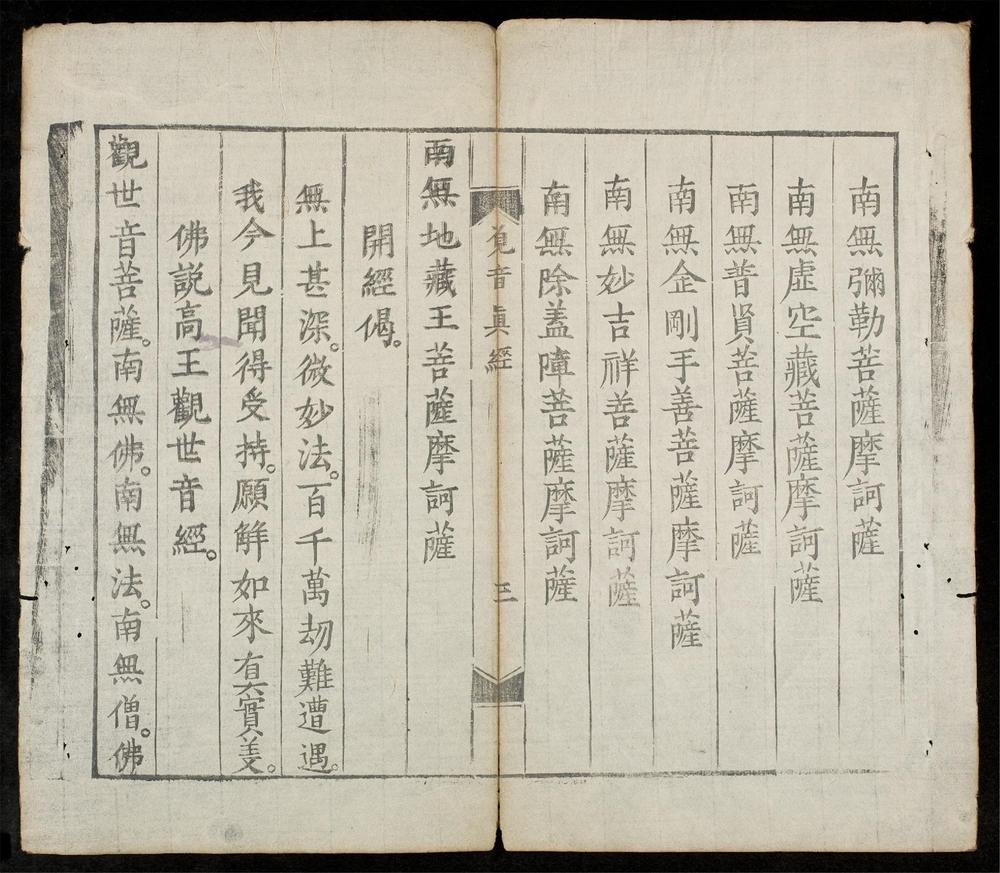 南無彌勒菩薩摩訶薩
南無虛空藏菩薩摩訶薩
南無普賢菩薩摩訶薩
南無金剛手善菩薩摩訶薩
南無妙吉祥善薩摩訶薩
南無除盖障菩薩摩訶薩
音眞經
三
南無地藏王菩薩摩訶薩
開經偈。
無上甚深。微妙法。百千萬刼難遭遇。
我今見聞得受持。願觧如來真實義。
佛說高王觀世音經。
觀世音菩薩。南無佛。南無法。南無僧。佛